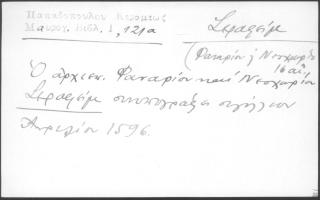 Παπαδοπούλου Κεραμέως
Μαυρογ. Βιβλ. 1, 121α
Σεραφείμ
(Φαναρίου & Νεοχωρίου
16 αἰ.)
Ὁ ἀρχιεπ. Φαναρίου καὶ Νεοχωρίου
Σεραφείμ συνυπογράφει σιγίλλιον
Ἀπριλίου 1596.